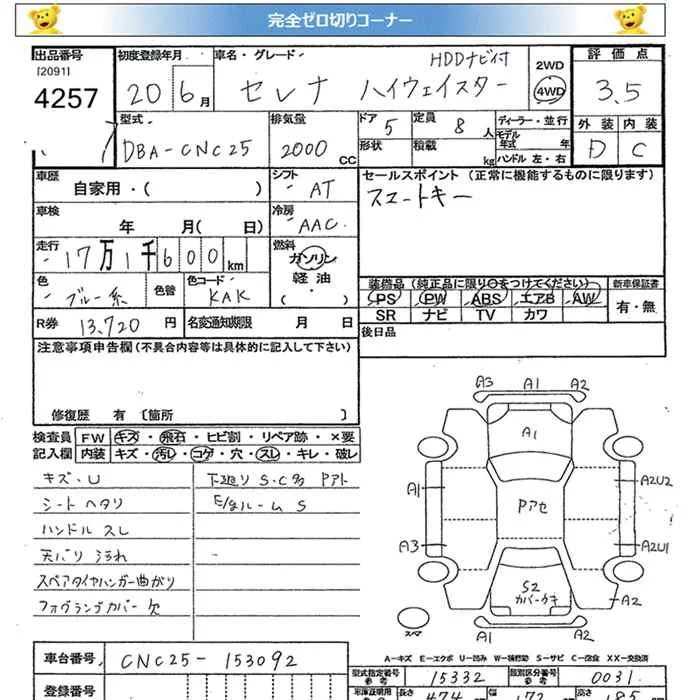 完全ゼロ切りコーナー
出品番号 初度登録年月 車名・グレード HDDナビ付 2WD 評価点
[2091]
4257 20 6月 セレナ ハイウェイスター 4WD 3.5
型式 排気量 ドア 定員 ディーラー・並行 外装 内装
DBA-CNC25 2000cc 5 8人 モデル年式 年 D C
形状 積載 kg ハンドル 左・右
車歴 シフト セールスポイント (正常に機能するものに限ります)
自家用・( ) AT スマートキー
車検 冷房
年 月( 日) AAC
走行 燃料
17万1千600km ガソリン
軽油
・( )
色 色替 色コード 装備品 (純正品に限り○をつけてください) 新車保証書
ブルー系 KAK PS PW ABS エアB AW 有・無
SR ナビ TV カワ
R券 13,720円 名変通知期限 月 日 後日品
注意事項申告欄(不具合内容等は具体的に記入して下さい)
修復歴 有 [箇所 ]
検査員 FW キズ・飛石・ヒビ割・リペア跡・×要
記入欄 内装 キズ・汚レ・コゲ・穴・スレ・キレ・破レ
キズ・U 下廻り S・C多 Pアト
シート ヘタリ E/gルーム S
ハンドル スレ
天バリ ヨゴレ
スペアタイヤハンガー曲がり
フォグランプカバー 欠
A3 A1 A2
A1
A1 A2U2
Pアセ
A3 A2U1
S2
カバーウキ A2
スペア
A1 A2
A-キズ E-エクボ U-凹み W-補修跡 S-サビ C-腐食 XX-交換済
車台番号 CNC25-153092
型式指定番号 参考 15332 類別区分番号 参考 0031
登録番号 車庫証明用 参考 長さ 474 cm 幅 172 cm 高さ 185